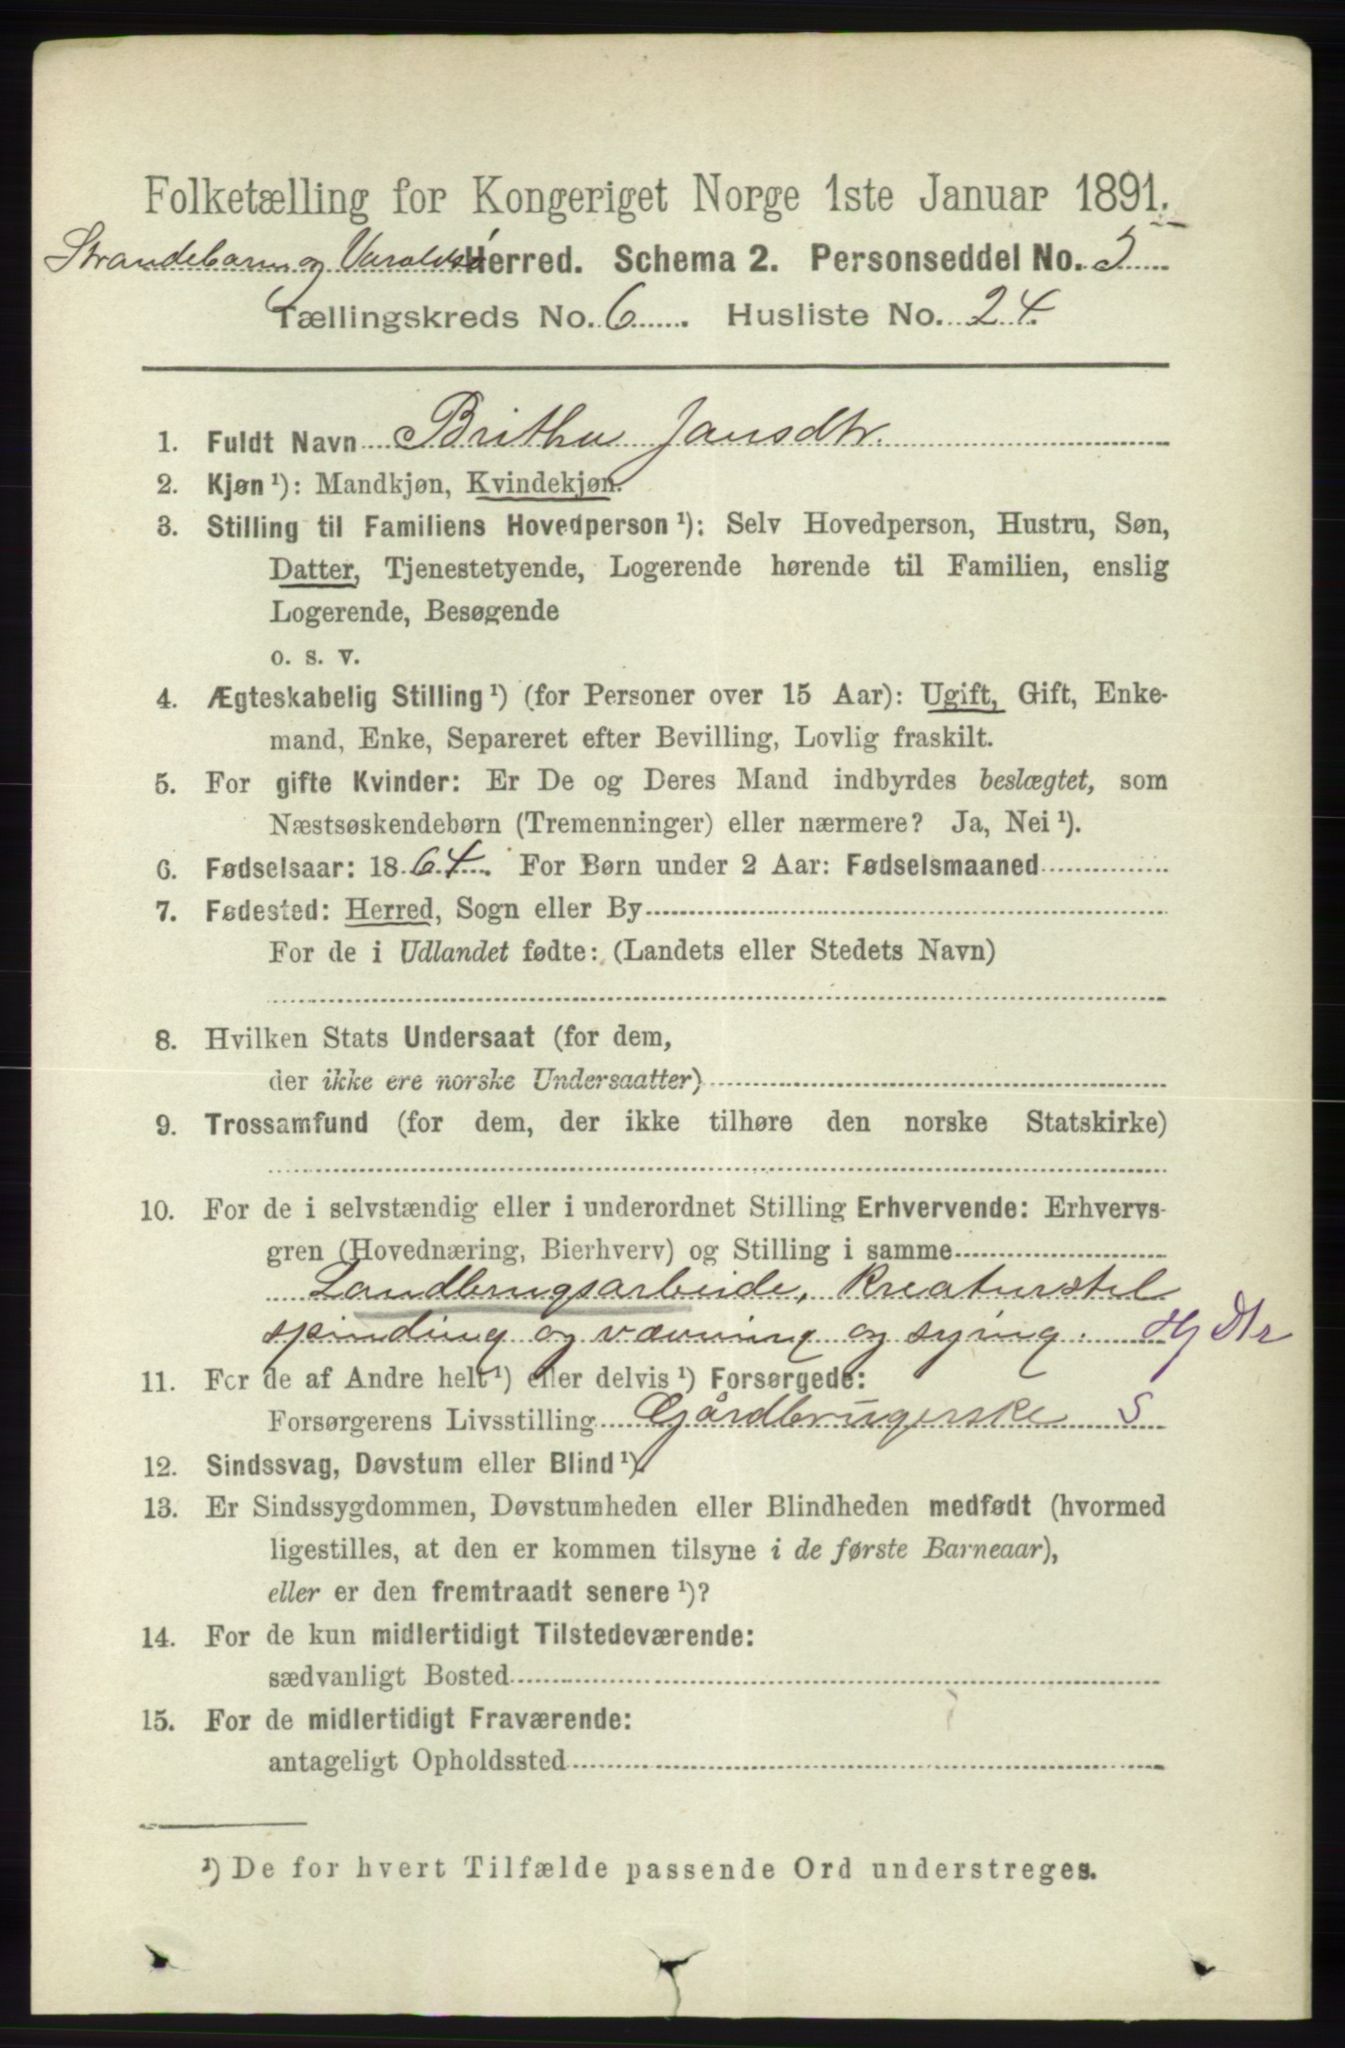 Folketælling for Kongeriget Norge 1ste Januar 1891.
Strandebarm og Varaldsö Herred. Schema 2. Personseddel No. 5
Tællingskreds No. 6. Husliste No. 24.
1. Fuldt Navn Britha Jansdtr.
2. Kjøn ¹): Mandkjøn, Kvindekjøn.
3. Stilling til Familiens Hovedperson ¹): Selv Hovedperson, Hustru, Søn,
Datter, Tjenestetyende, Logerende hørende til Familien, enslig
Logerende, Besøgende
o. s. v.
4. Ægteskabelig Stilling ¹) (for Personer over 15 Aar): Ugift, Gift, Enke-
mand, Enke, Separeret efter Bevilling, Lovlig fraskilt.
5. For gifte Kvinder: Er De og Deres Mand indbyrdes beslægtet, som
Næstsøskendebørn (Tremenninger) eller nærmere? Ja, Nei ¹).
6. Fødselsaar: 1864. For Børn under 2 Aar: Fødselsmaaned
7. Fødested: Herred, Sogn eller By
For de i Udlandet fødte: (Landets eller Stedets Navn)
8. Hvilken Stats Undersaat (for dem,
der ikke ere norske Undersaatter)
9. Trossamfund (for dem, der ikke tilhøre den norske Statskirke)
10. For de i selvstændig eller i underordnet Stilling Erhvervende: Erhvervs-
gren (Hovednæring, Bierhverv) og Stilling i samme
Landbrugsarbeide, Kreaturstel
spinding og vævning og sying. Hj Dtr
11. For de af Andre helt ¹) eller delvis ¹) Forsørgede:
Forsørgerens Livsstilling Gårdbrugerske S
12. Sindssvag, Døvstum eller Blind ¹).
13. Er Sindssygdommen, Døvstumheden eller Blindheden medfødt (hvormed
ligestilles, at den er kommen tilsyne i de første Barneaar),
eller er den fremtraadt senere ¹)?
14. For de kun midlertidigt Tilstedeværende:
sædvanligt Bosted
15. For de midlertidigt Fraværende:
antageligt Opholdssted
¹) De for hvert Tilfælde passende Ord understreges.